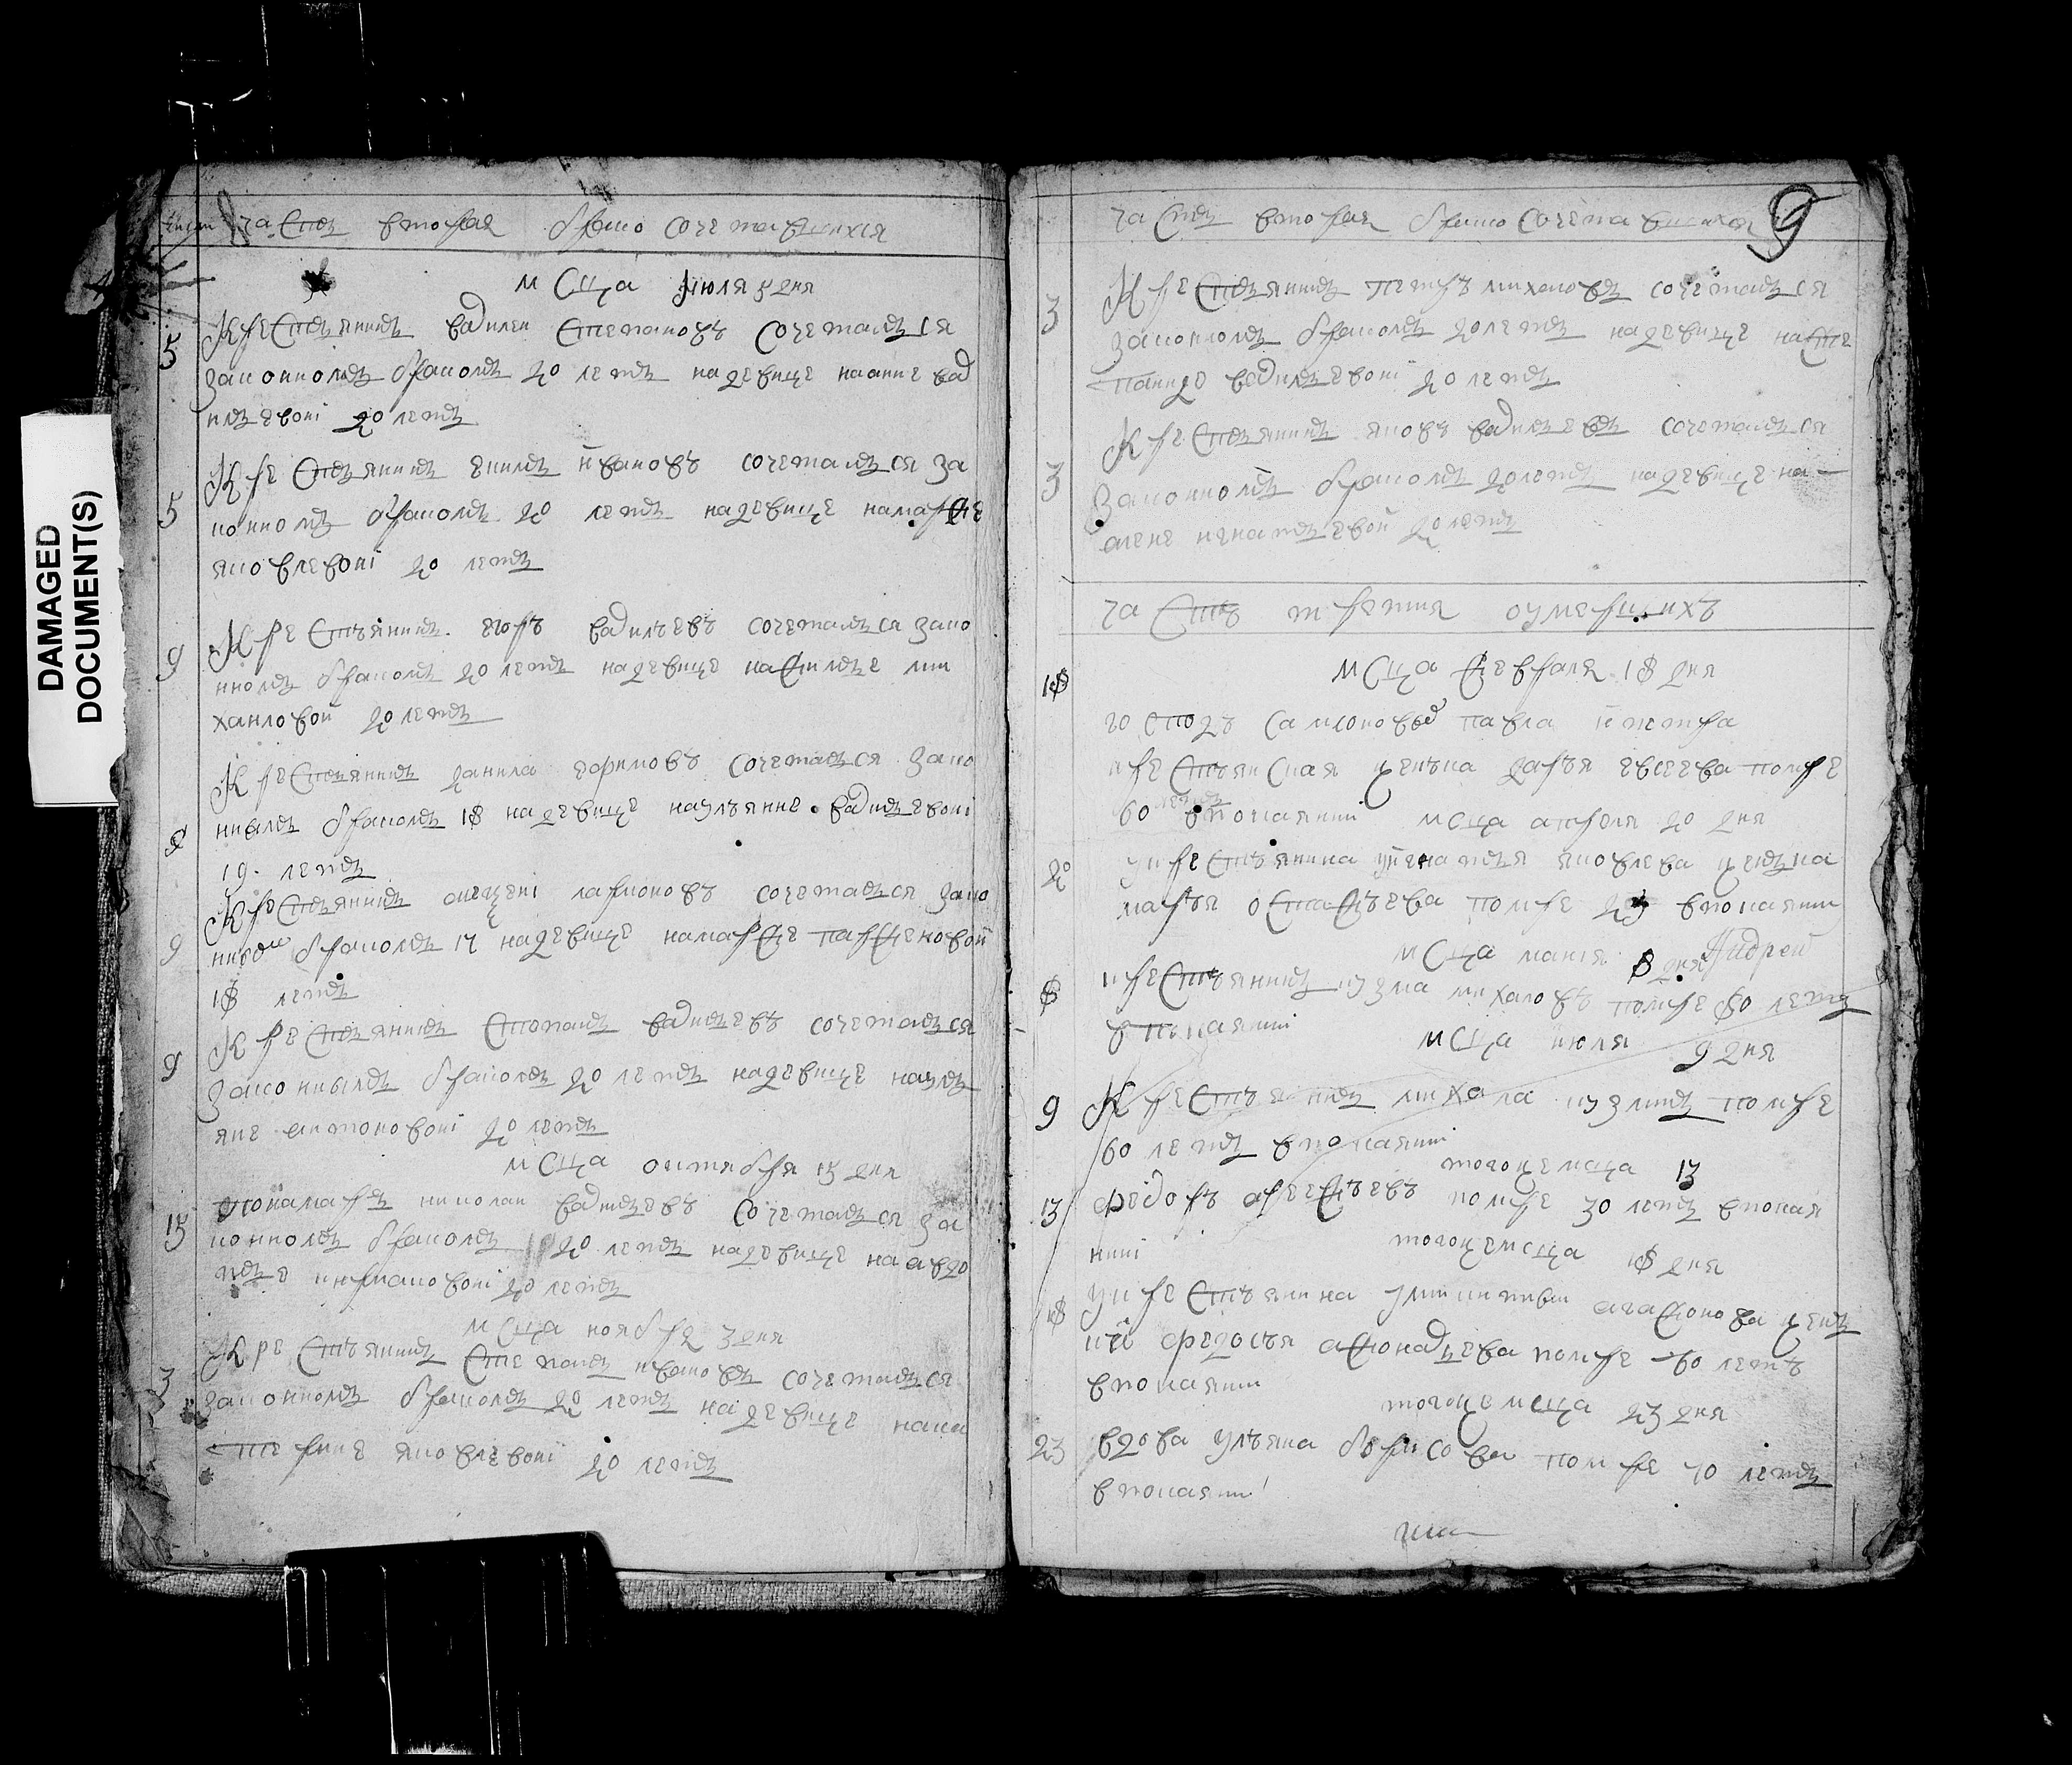 DAMAGED
DOCUMENT(S)
часть вторая о брако сочетавшихся
мсца июля 5 дня
5
крестьянинъ василеи степановъ сочетался
законномъ бракомъ 20 летъ на девице на анне вас
ильевои 20 летъ
5
крестьянинъ екимъ ивановъ сочетался за
конномъ бракомъ 20 летъ на девице на марфе
яковлевои 20 летъ
9
крестьянинъ егоръ васильевъ сочетался зако
нномъ бракомъ 20 летъ на девице на фимье ми
хаиловои 20 летъ
8
крестьянинъ данила ефимовъ сочетался зако
ннымъ бракомъ 18 на девице на ульянне васильевои
19 летъ
9
крестьянинъ алексеи ларионовъ сочетался зако
ннымъ бракомъ 17 на девице на марфе парфеновои
18 летъ
9
крестьянинъ степанъ васильевъ сочетался
законнымъ бракомъ 20 летъ на девице на уль
яне антоновои 20 летъ
мсца октября 15 дня
15
понамарь николаи васильевъ сочетался за
конномъ бракомъ 20 летъ на девице на авдо
тье 20 летъ
мсца ноября 3 дня
3
крестьянинъ степанъ ивановъ сочетался
законномъ бракомъ 20 летъ на девице нака
терине яковлевои 20 летъ
часть вторая о брако сочетавшихся
9
3
крестьянинъ петръ михаловъ сочетался
законномъ бракомъ 20 летъ на девице на сте
паниде васильевои 20 летъ
3
крестьянинъ яковъ васильевъ сочетался
законномъ бракомъ 20 летъ на девице на
алене игнатьевои 20 летъ
часть третия о умершихъ
мсца февраля 18 дня
18
господъ самсоновыхъ павла и петра
крестьянская женъка дарья евсеева помре
60 летъ в покаянии мсца апреля 20 дня
20
у крестьянина игнатья яковлева женька
марья остафьева помре в покаянии
мсца маия 8 дня Андрей
8
крестьянинъ кузма михаловъ помре 80 летъ
в покаянии мсца июля 9 дня
9
крестьянинъ михаила кузминъ помре
60 летъ в покаянии
того же мсца 13
13
федоръ арефьевъ помре 30 летъ в покая
нии
того же мсца 18 дня
18
у крестьянина агафонова жен
ка федосья помре летъ
в покаянии
того же мсца 23 дня
23
вдова ульяна борисова помре 70 летъ
в покаянии